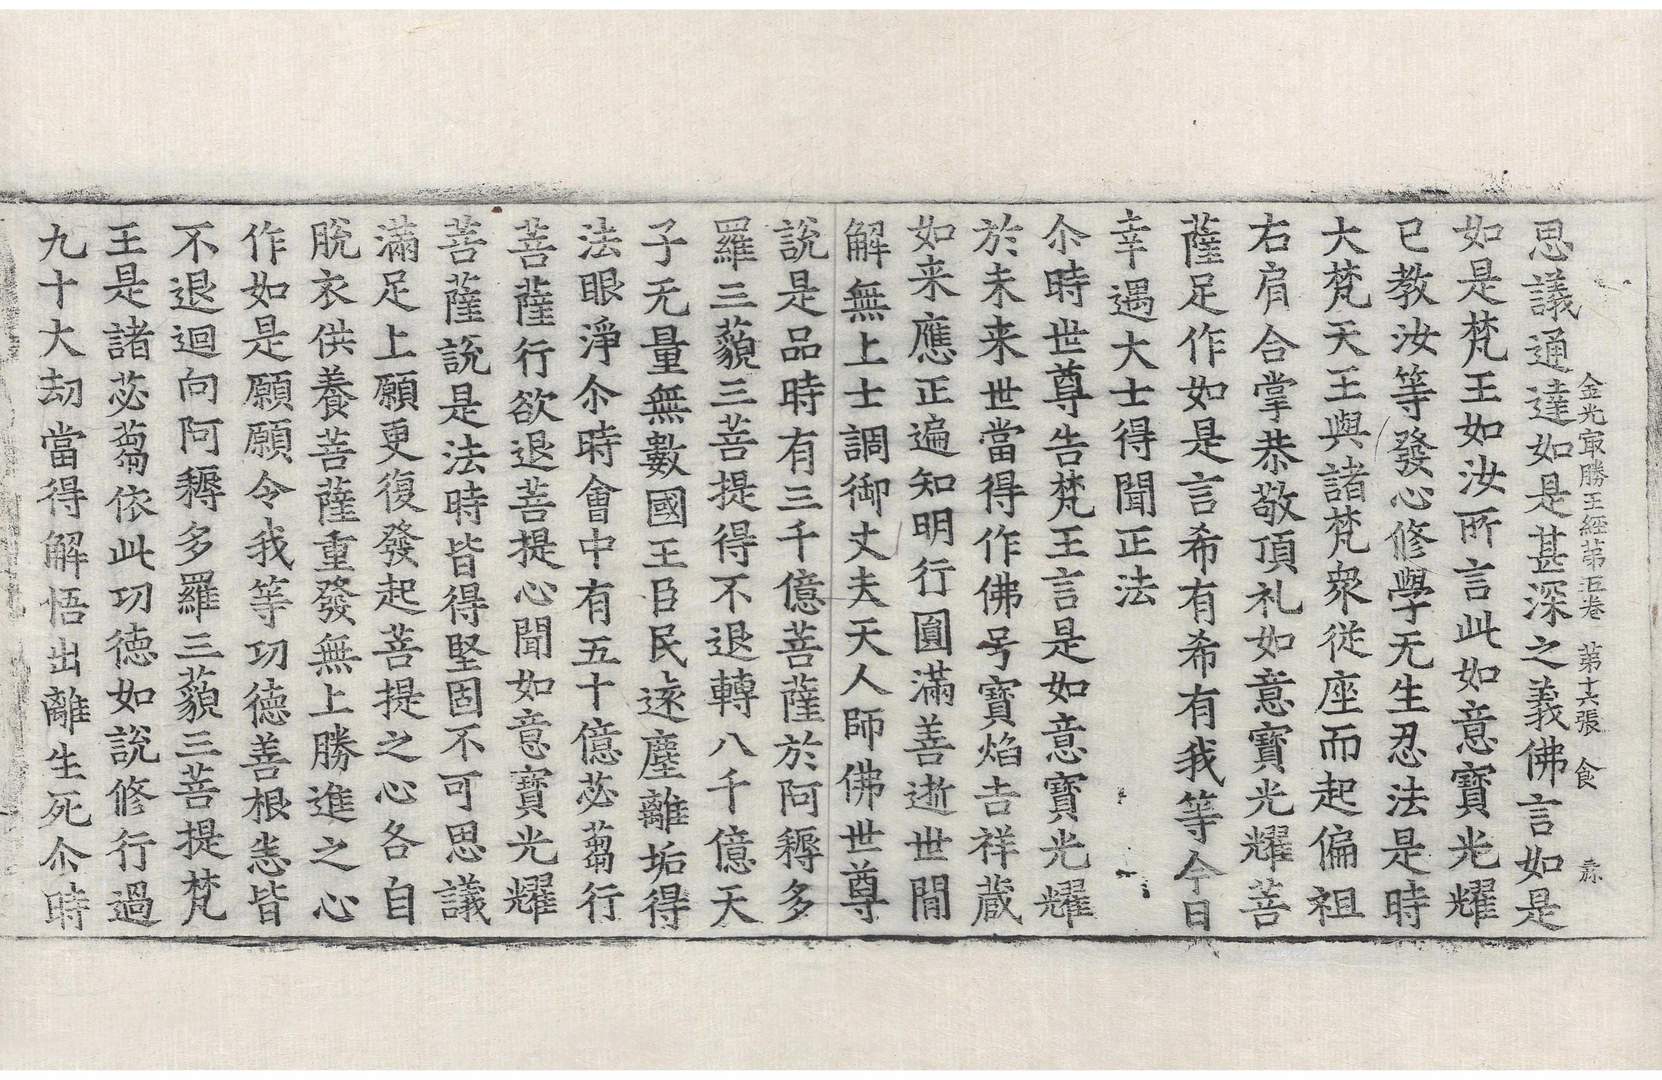 金光㝡勝王經第五卷　第十六張　食　霖
思議通達如是甚深之義佛言如是
如是梵王如汝所言此如意寶光耀
已教汝等發心修學无生忍法是時
大梵天王與諸梵衆從座而起偏袒
右肩合掌恭敬頂礼如意寶光耀菩
薩足作如是言希有希有我等今日
幸遇大士得聞正法
尒時世尊告梵王言是如意寶光耀
於未来世當得作佛号寶焰吉祥蔵
如来應正遍知明行圓滿善逝世間
解無上士調御丈夫天人師佛世尊
說是品時有三千億菩薩於阿耨多
羅三藐三菩提得不退轉八千億天
子无量無數國王臣民遠塵離垢得
法眼淨尒時會中有五十億苾蒭行
菩薩行欲退菩提心聞如意寶光耀
菩薩說是法時皆得堅固不可思議
滿足上願更復發起菩提之心各自
脫衣供養菩薩重發無上勝進之心
作如是願願令我等功德善根悉皆
不退迴向阿耨多羅三藐三菩提梵
王是諸苾蒭依此功德如說修行過
九十大劫當得解悟出離生死尒時